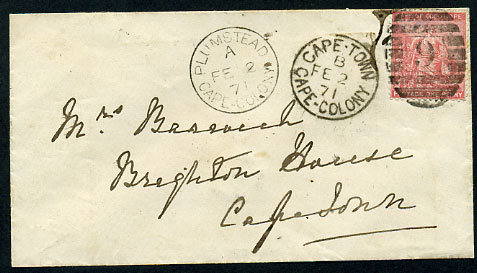 PLUMSTEAD
A
FE 2
71
CAPE-COLONY
CAPE-TOWN
B
FE 2
71
CAPE-COLONY
Mrs
Brighton House
Cape Town